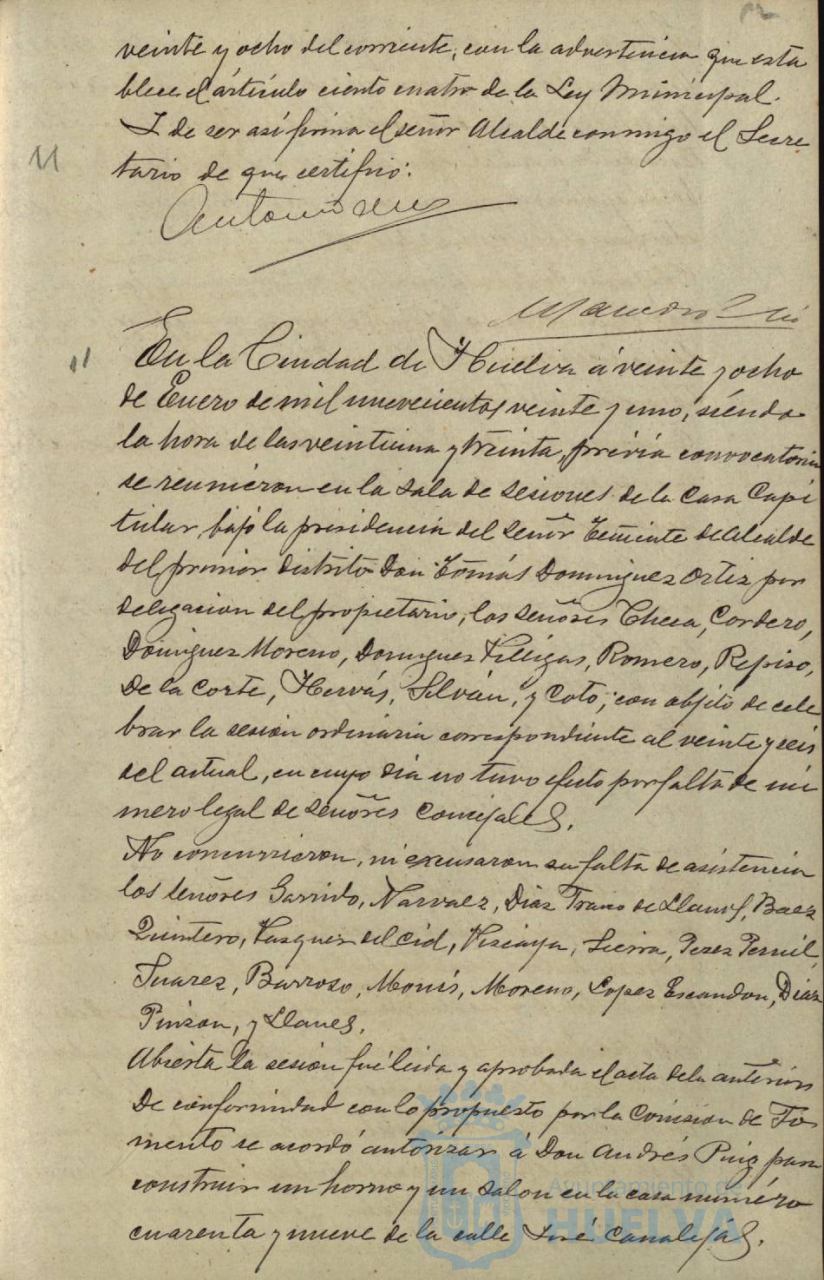 12
veinte y ocho del corriente, con la advertencia que esta
blece el artículo ciento cuatro de la Ley Municipal.
Y de ser así firma el señor Alcalde conmigo el Secre
tario de que certifico.
11
11
En la Ciudad de Huelva á veinte y ocho
de Enero de mil nuevecientos veinte y uno, siendo
la hora de las veintiuna y treinta, previa convocatoria
se reunieron en la sala de sesiones de la Casa Capi
tular, bajo la presidencia del Señor Teniente de Alcalde
del primer distrito Don Tomás Dominguez Ortiz por
delegacion del propietario, los señores Checa, Cordero,
Dominguez Moreno, Dominguez Villegas, Romero, Repiso,
De la Corte, Hervás, Silván, y Coto; con objeto de cele
brar la sesion ordinaria correspondiente al veinte y seis
del actual, en cuyo dia no tuvo efecto por falta de nú
mero legal de Señores Concejales.
No concurrieron, ni excusaron su falta de asistencia
los señores Garrido, Narvaez, Diaz Franco de Llanos, Baez
Quintero, Vasquez del Cid, Viscaya, Sierra, Perez Pernil,
Suarez, Barroso, Monís, Moreno, Lopez Escandon, Diaz
Pinzon, y Llanes.
Abierta la sesion fué leida y aprobada el acta de la anterior
De conformidad con lo propuesto por la Comision de Fo
mento se acordó autorizar á Don Andrés Puig para
construir un horno y un salon en la casa numéro
cuarenta y nueve de la calle José Canalejas.
Ayuntamiento de
HUELVA